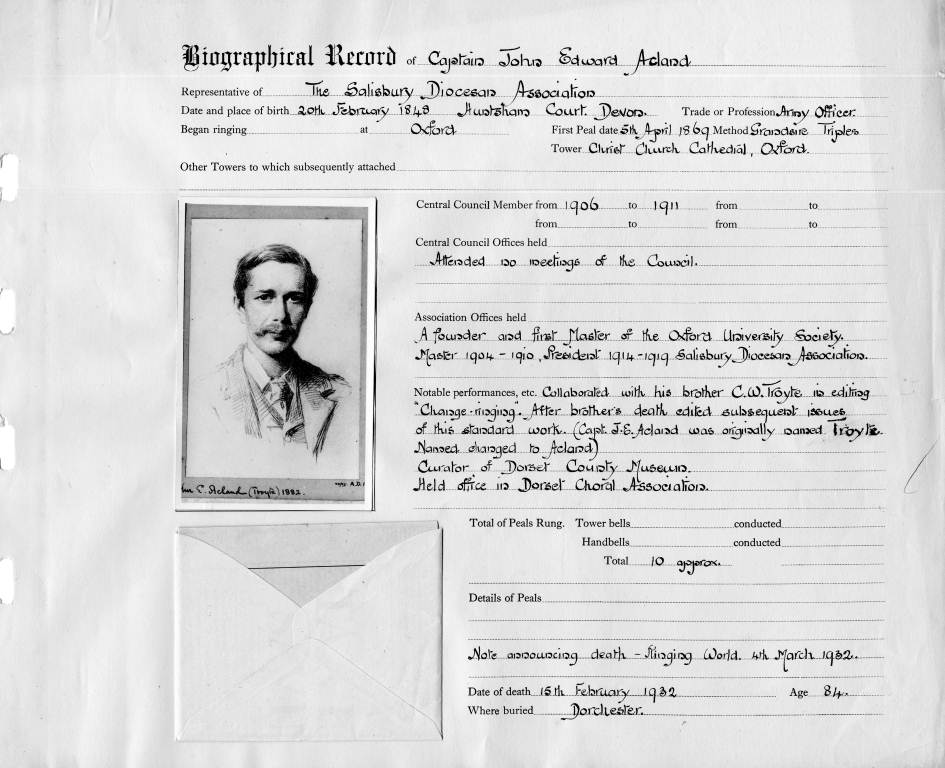 Biographical Record of Captain John Edward Acland
Representative of The Salisbury Diocesan Association
Date and place of birth 20th February 1848 Huntsham Court. Devon. Trade or Profession Army Officer.
Began ringing at Oxford First Peal date 5th April 1869 Method Grandsire Triples
Tower Christ Church Cathedral, Oxford.
Other Towers to which subsequently attached
Central Council Member from 1906 to 1911 from to
from to from to
Central Council Offices held
Attended no meetings of the Council.
Association Offices held
A founder and first Master of the Oxford University Society.
Master 1904 - 1910, President 1914-1919 Salisbury Diocesan Association.
Notable performances, etc. Collaborated with his brother C.W. Troyte in editing
"Change-ringing". After brother's death edited subsequent issues
of this standard work. (Capt. J.E. Acland was originally named Troyte.
Named changed to Acland)
Curator of Dorset County Museum.
Held office in Dorset Choral Association.
E. Acland (Troyte) 1882.
Total of Peals Rung. Tower bells conducted
Handbells conducted
Total 10 approx.
Details of Peals
Note announcing death - Ringing World. 4th March 1932.
Date of death 15th February 1932 Age 84.
Where buried Dorchester.